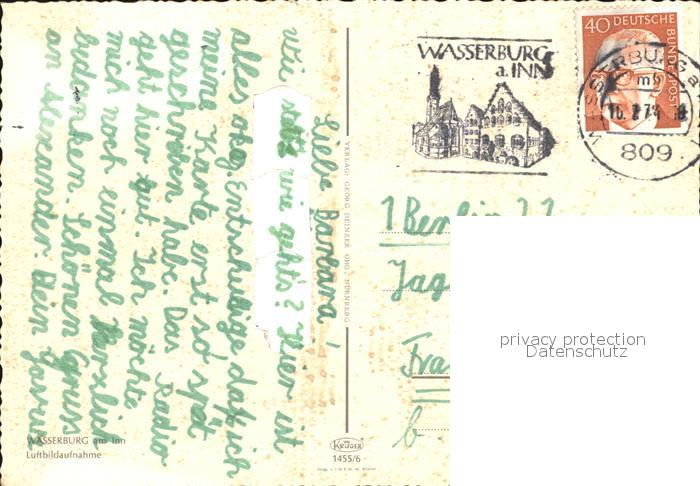 Liebe Barbara!
wie gehts? Hier ist
alles okay. Entschuldige daß ich
meine Karte erst so spät
geschrieben habe. Das Radio
geht hier gut. Ich möchte
mich noch einmal herzlich
bedanken. Schönen Gruss
an Alexander. Dein
WASSERBURG am Inn
Luftbildaufnahme
VERLAG: GEORG DEINZER OHG. NÜRNBERG
KRÜGER
1455/6
WASSERBURG
a. INN
40 DEUTSCHE BUNDESPOST
WASSERBURG a. INN
mb
809
1 Berlin
Jag
Fra
b.
privacy protection
Datenschutz